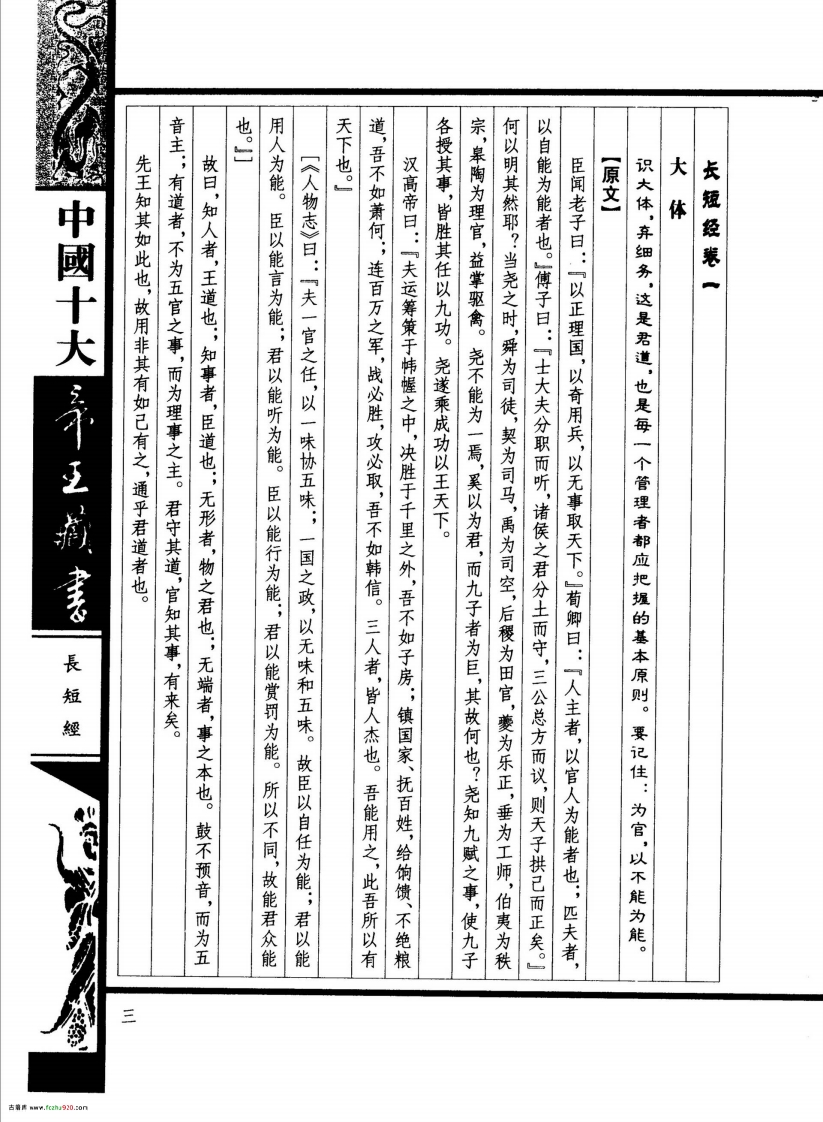 长短经卷一
大体
识大体，弃细务，这是君道，也是每一个管理者都应把握的基本原则。要记住：为官，以不能为能。
【原文】
臣闻老子曰：『以正理国，以奇用兵，以无事取天下。』荀卿曰：『人主者，以官人为能者也；匹夫者，
以自能为能者也。』傅子曰：『士大夫分职而听，诸侯之君分土而守，三公总方而议，则天子拱己而正矣。』
何以明其然耶？当尧之时，舜为司徒，契为司马，禹为司空，后稷为田官，夔为乐正，垂为工师，伯夷为秩
宗，皋陶为理官，益掌驱禽。尧不能为一焉，奚以为君，而九子者为巨，其故何也？尧知九赋之事，使九子
各授其事，皆胜其任以九功。尧遂乘成功以王天下。
汉高帝曰：『夫运筹策于帏幄之中，决胜于千里之外，吾不如子房；镇国家、抚百姓，给饷馈、不绝粮
道，吾不如萧何；连百万之军，战必胜，攻必取，吾不如韩信。三人者，皆人杰也。吾能用之，此吾所以有
天下也。』
[《人物志》曰：『夫一官之任，以一味协五味；一国之政，以无味和五味。故臣以自任为能；君以能
用人为能。臣以能言为能；君以能听为能。臣以能行为能；君以能赏罚为能。所以不同，故能君众能
也。』]
故曰，知人者，王道也；知事者，臣道也；无形者，物之君也；无端者，事之本也。鼓不预音，而为五
音主；有道者，不为五官之事，而为理事之主。君守其道，官知其事，有来矣。
先王知其如此也，故用非其有如己有之，通乎君道者也。
中國十大
帝王藏書
長短經
三
古籍库 www.fczhu920.com